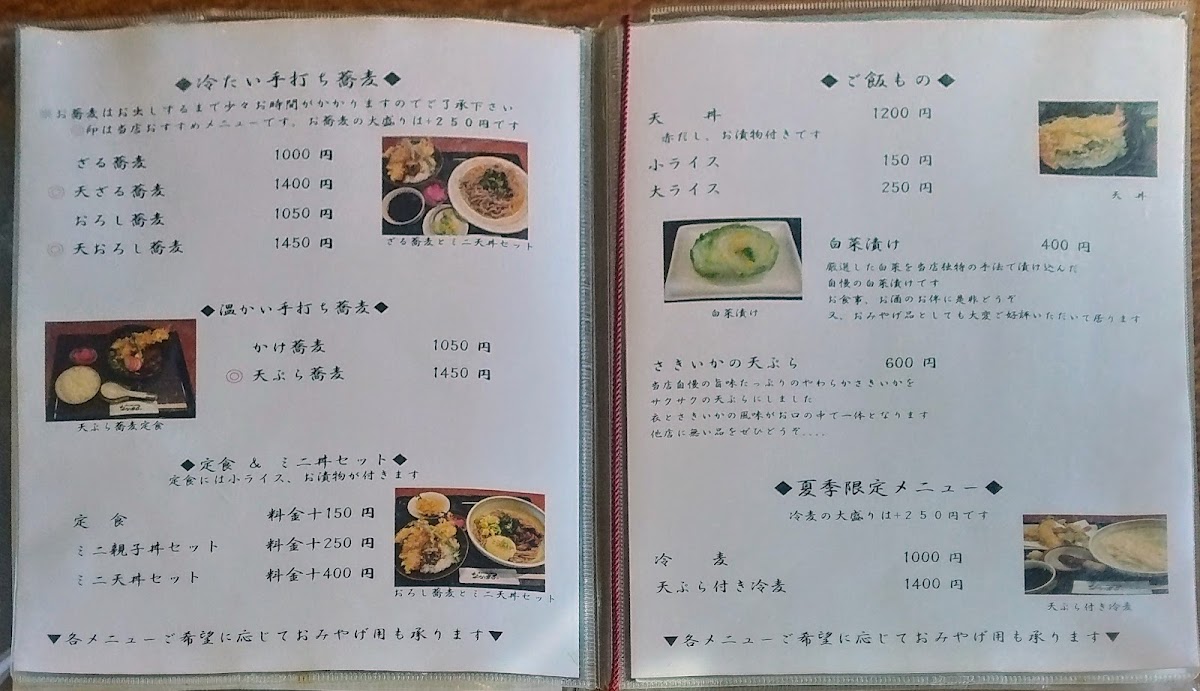 ◆冷たい手打ち蕎麦◆
※お蕎麦はお出しするまで少々お時間がかかりますのでご了承下さい
◎印は当店おすすめメニューです。お蕎麦の大盛りは+250円です
ざる蕎麦 1000 円
◎ 天ざる蕎麦 1400 円
おろし蕎麦 1050 円
◎ 天おろし蕎麦 1450 円
ざる蕎麦とミニ天丼セット
◆温かい手打ち蕎麦◆
かけ蕎麦 1050 円
◎ 天ぷら蕎麦 1450 円
天ぷら蕎麦定食
◆定食 & ミニ丼セット◆
定食には小ライス、お漬物が付きます
定 食 料金+150 円
ミニ親子丼セット 料金+250 円
ミニ天丼セット 料金+400 円
おろし蕎麦とミニ天丼セット
▼各メニューご希望に応じておみやげ用も承ります▼
◆ご飯もの◆
天 丼 1200 円
赤だし、お漬物付きです
小ライス 150 円
大ライス 250 円
天 丼
白菜漬け 400 円
厳選した白菜を当店独特の手法で漬け込んだ
自慢の白菜漬けです
お食事、お酒のお伴に是非どうぞ
又、おみやげ品としても大変ご好評いただいて居ります
白菜漬け
さきいかの天ぷら 600 円
当店自慢の旨味たっぷりのやわらかさきいかを
サクサクの天ぷらにしました
衣とさきいかの風味がお口の中で一体となります
他店に無い品をぜひどうぞ....
◆夏季限定メニュー◆
冷麦の大盛りは+250円です
冷 麦 1000 円
天ぷら付き冷麦 1400 円
天ぷら付き冷麦
▼各メニューご希望に応じておみやげ用も承ります▼